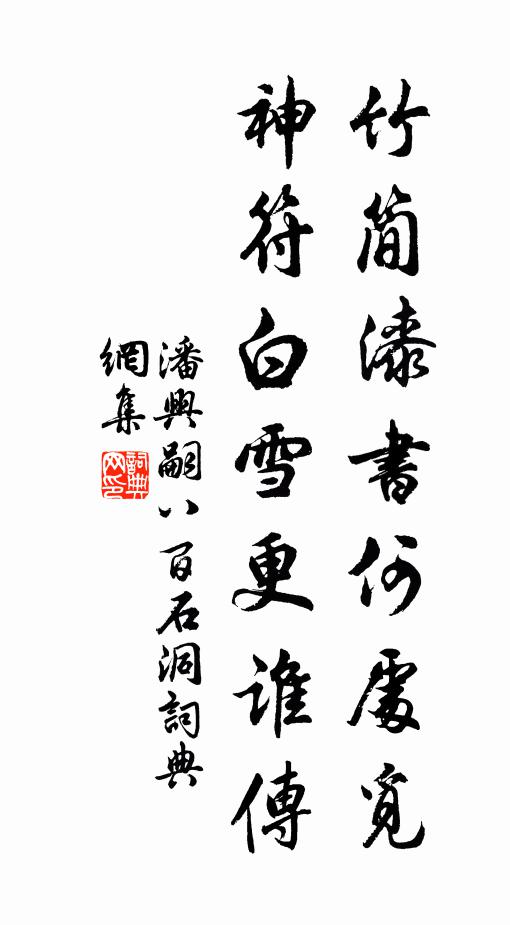 竹简漆書何處覓
神符白雪更誰傳
潘興嗣八百石洞詞典
網集
詞典
网印